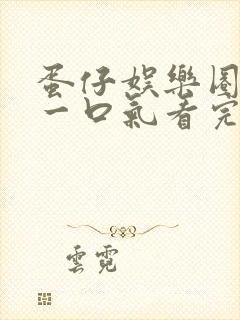 蛋仔娛樂圈
一口氣看完
雲霓